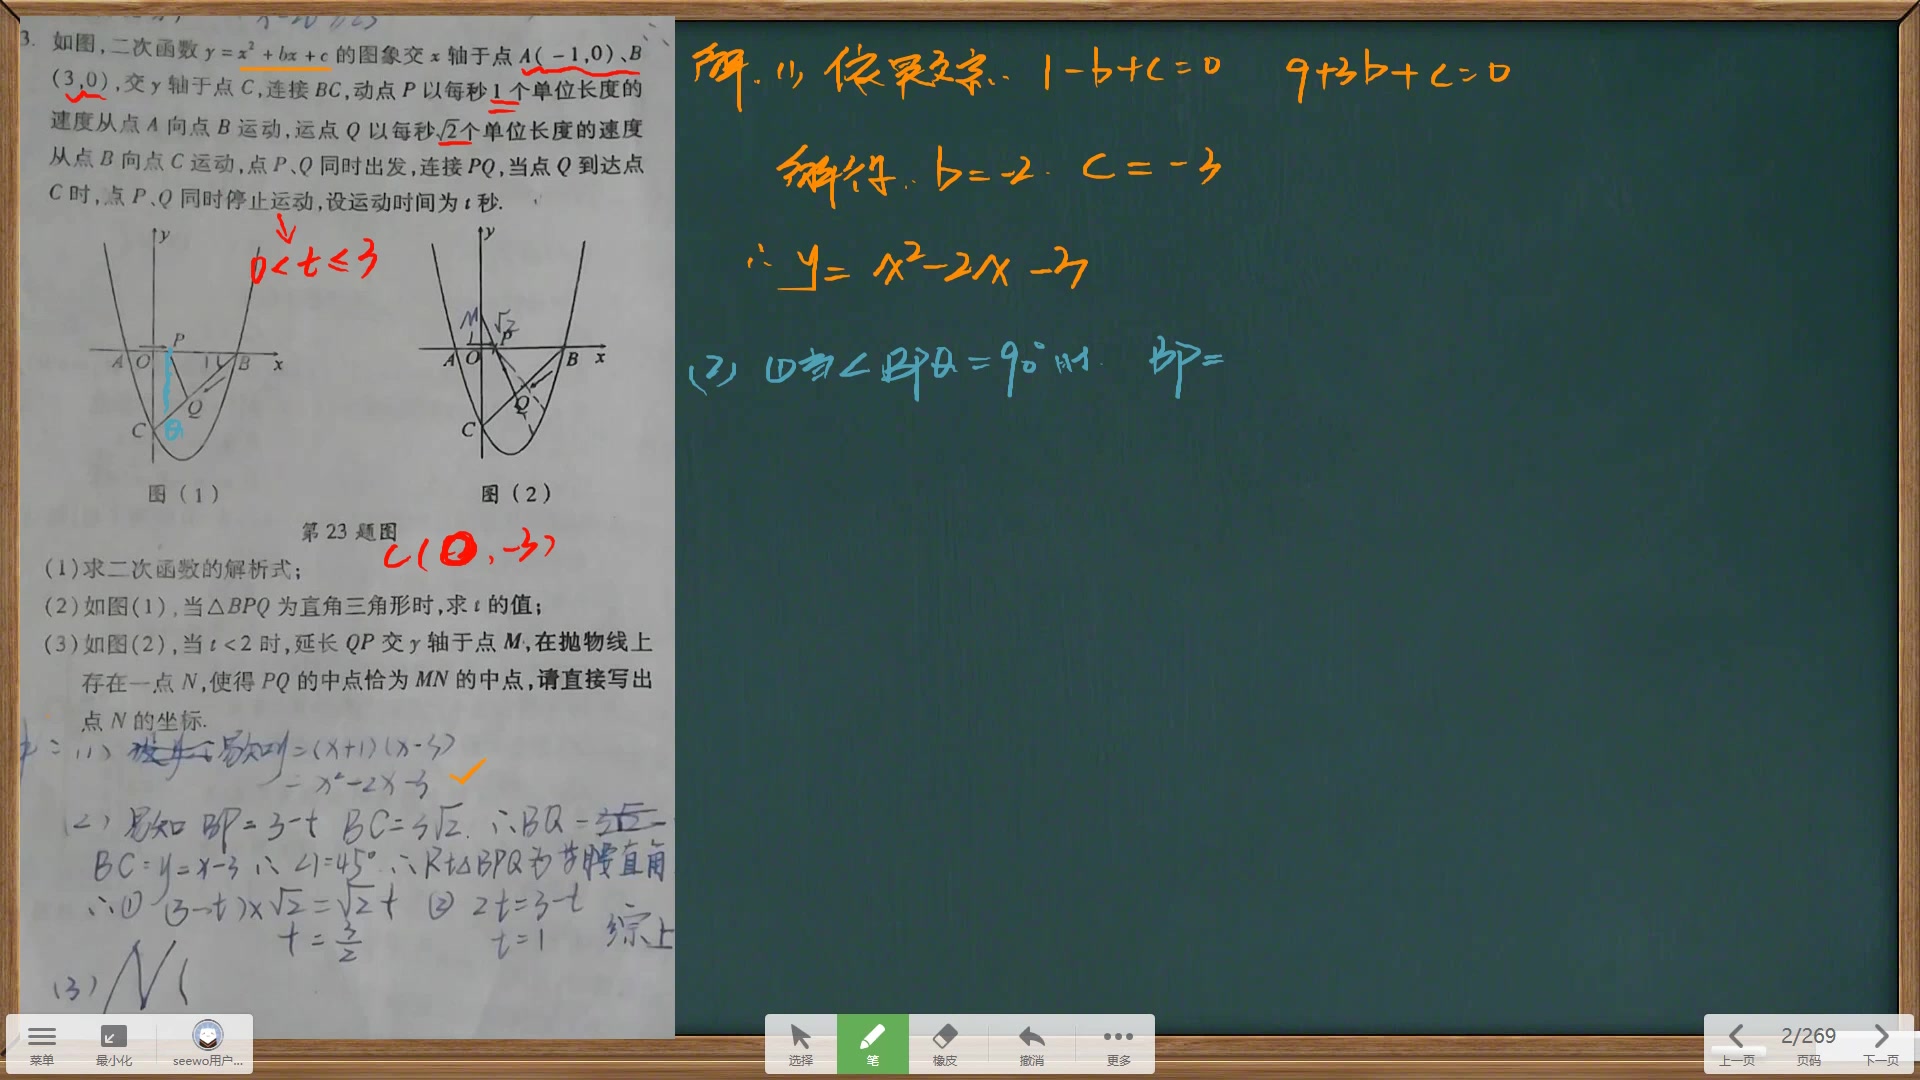 3. 如图,二次函数 y=x²+bx+c 的图象交 x 轴于点 A(-1,0)、B
(3,0),交 y 轴于点 C,连接 BC,动点 P 以每秒 1 个单位长度的
速度从点 A 向点 B 运动,运点 Q 以每秒√2个单位长度的速度
从点 B 向点 C 运动,点 P、Q 同时出发,连接 PQ,当点 Q 到达点
C 时,点 P、Q 同时停止运动,设运动时间为 t 秒.
0<t≤3
y
P
A O B x
Q
C
Q
图(1)
y
M √2
1 P
A O B x
Q
C
图(2)
第 23 题图
C(0,-3)
(1)求二次函数的解析式;
(2)如图(1),当△BPQ 为直角三角形时,求 t 的值;
(3)如图(2),当 t<2 时,延长 QP 交 y 轴于点 M,在抛物线上
存在一点 N,使得 PQ 的中点恰为 MN 的中点,请直接写出
点 N 的坐标.
(1) 易知y=(x+1)(x-3)
=x²-2x-3
(2) 易知 BP=3-t BC=3√2 ∴BQ=
BC:y=x-3 ∴∠1=45° ∴Rt△BPQ为等腰直角
∴① (3-t)×√2=√2t ② 2t=3-t
t=3/2 t=1 综上
(3) N(
解.(1) 依题意 1-b+c=0 9+3b+c=0
解得 b=-2. c=-3
∴y=x²-2x-3
(2) ①当∠BPQ=90°时. BP=
菜单
最小化
seewo用户...
选择
笔
橡皮
撤消
更多
上一页
2/269
页码
下一页